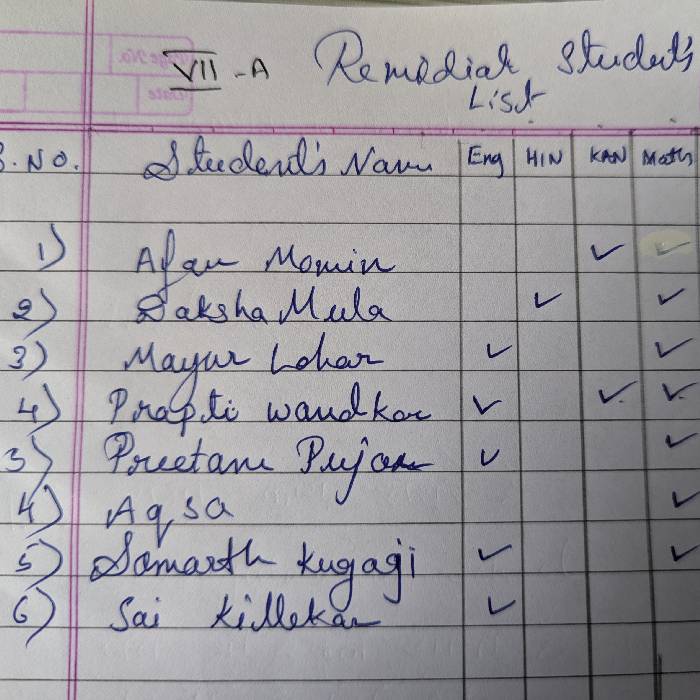 Page No.
Date
VII - A Remedial Student's
List
S. No. Student's Name Eng HIN KAN Maths
1) Afan Momin ✓ ✓
2) Daksha Mula ✓ ✓
3) Mayur Lohar ✓ ✓
4) Prapti Wandkar ✓ ✓ ✓
3) Preetam Pujar ✓ ✓
4) Aqsa ✓
5) Samarth Kugagi ✓ ✓
6) Sai Killekar ✓